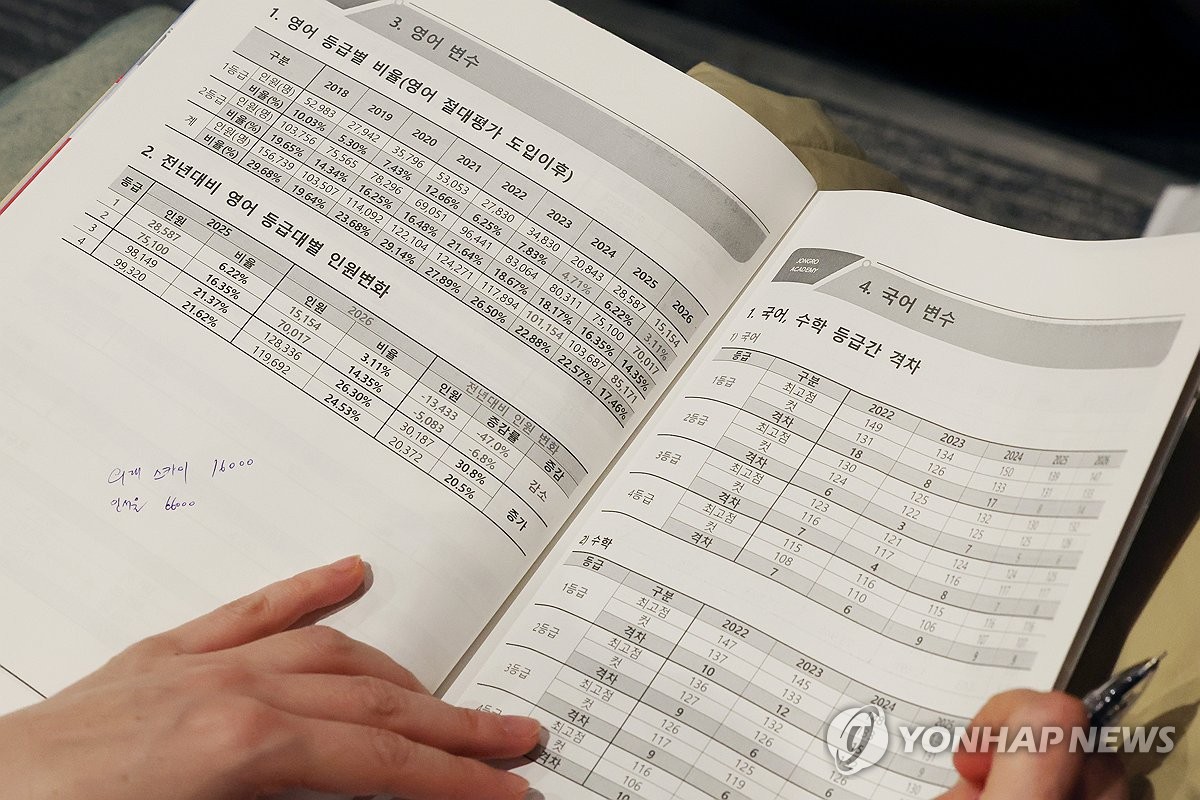 3. 영어 변수
1. 영어 등급별 비율(영어 절대평가 도입이후)
구분 2018 2019 2020 2021 2022 2023 2024 2025 2026
1등급 인원(명) 52,983 27,942 35,796 53,053 27,830 34,830 20,843 28,587 15,154
비율(%) 10.03% 5.30% 7.43% 12.66% 6.25% 7.83% 4.71% 6.22% 3.11%
2등급 인원(명) 103,756 75,565 78,296 69,051 96,441 83,064 80,311 75,100 70,017
비율(%) 19.65% 14.34% 16.25% 16.48% 21.64% 18.67% 18.17% 16.35% 14.35%
계 인원(명) 156,739 103,507 114,092 122,104 124,271 117,894 101,154 103,687 85,171
비율(%) 29.68% 19.64% 23.68% 29.14% 27.89% 26.50% 22.88% 22.57% 17.46%
2. 전년대비 영어 등급대별 인원변화
등급 2025 2026 전년대비 인원 변화
인원 비율 인원 비율 인원 증감률 증감
1 28,587 6.22% 15,154 3.11% -13,433 -47.0% 감소
2 75,100 16.35% 70,017 14.35% -5,083 -6.8%
3 98,149 21.37% 128,336 26.30% 30,187 30.8% 증가
4 99,320 21.62% 119,692 24.53% 20,372 20.5%
스카이 16000
인서울 66000
JONGRO
ACADEMY
4. 국어 변수
1. 국어, 수학 등급간 격차
1) 국어
등급 구분 2022 2023 2024 2025 2026
1등급 최고점 149 134 150 139 147
컷 131 126 133 131 133
격차 18 8 17 8 14
2등급 최고점 130 125 132 130 132
컷 124 122 125 125 126
격차 6 3 7 5 6
3등급 최고점 123 121 124 124 125
컷 116 117 116
격차 7 4 8
4등급 최고점 115 116 115 116
컷 108 110 106 107
격차 7 6 9 9 9
2) 수학
등급 구분 2022 2023 2024 2025
1등급 최고점 147 145
컷 137 133
격차 10 12
2등급 최고점 136 132
컷 127 126
격차 9 6
3등급 최고점 126 125
컷 117 119
격차 9 6
4등급 최고점 116
컷 106
격차 10
YONHAP NEWS